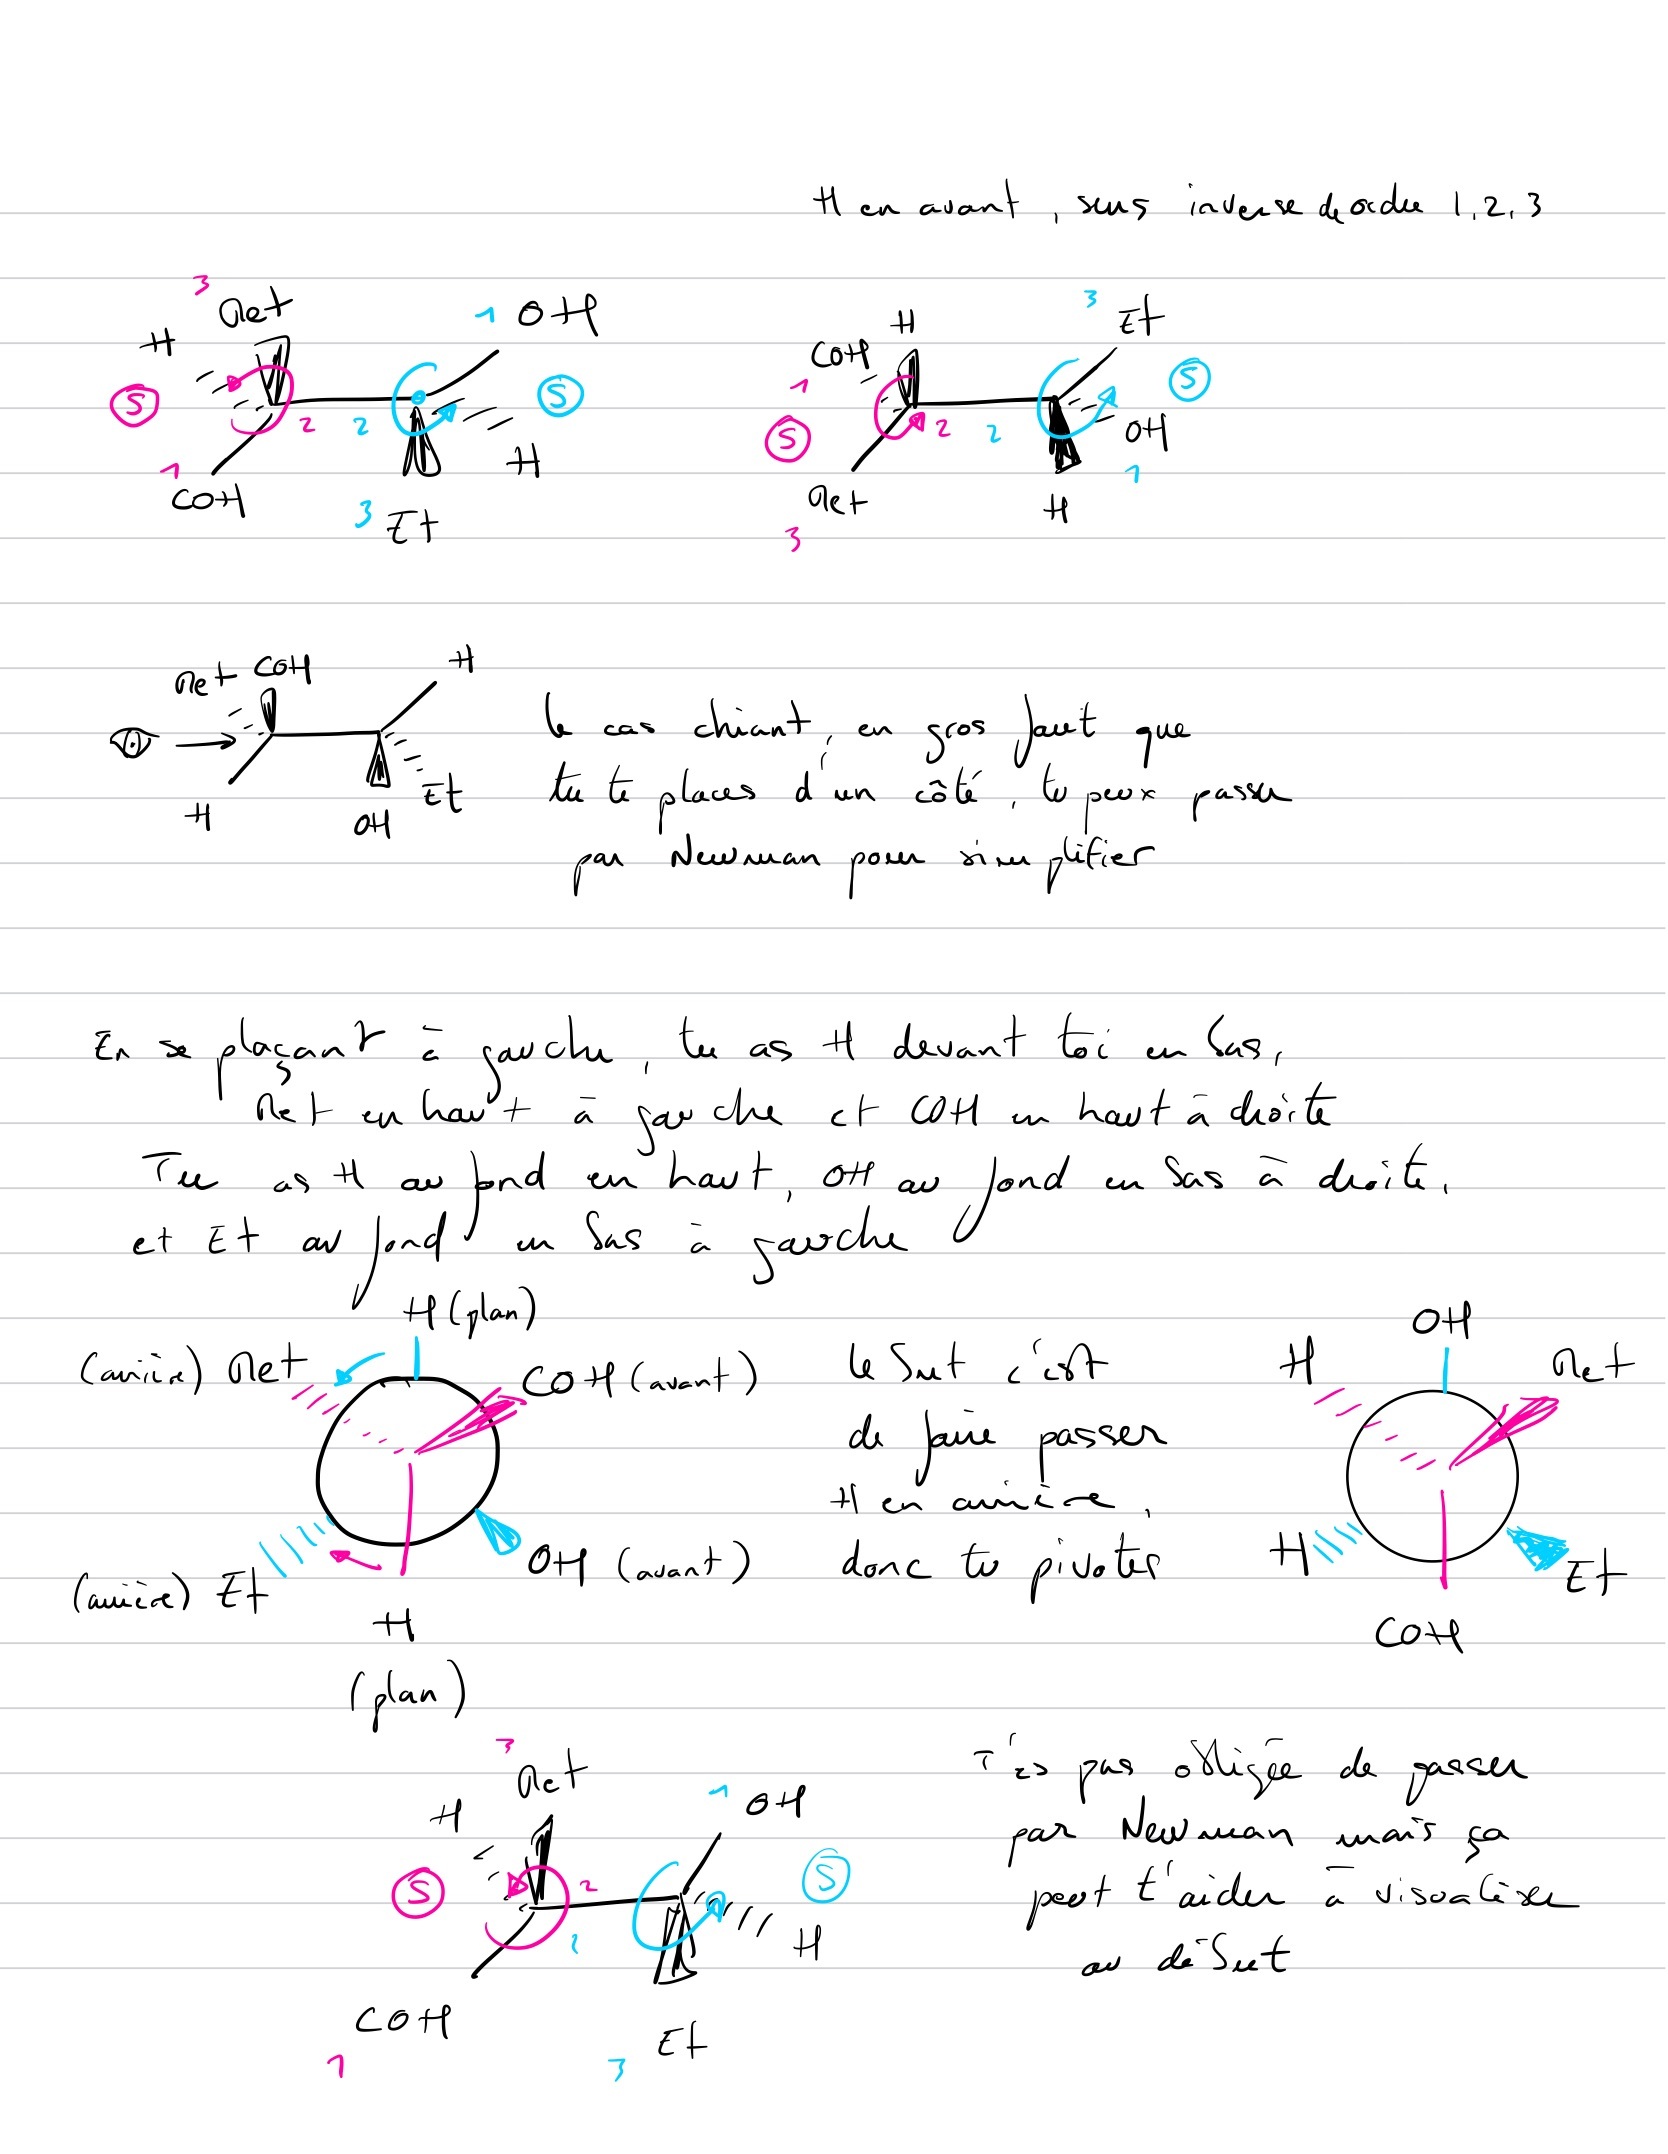 H en avant, sens inverse de ordre 1, 2, 3
3
Met
H
1 OH
S
2
2
S
1
COH
H
3 Et
H
3
Et
COH
1
S
2
2
S
OH
1
Met
3
H
Met COH
H
H
OH
Et
le cas chiant, en gros faut que
tu te places d'un côté, tu peux passer
par Newman pour simplifier
En se plaçant à gauche, tu as H devant toi en bas,
Met en haut à gauche et COH en haut à droite
Tu as H au fond en haut, OH au fond en bas à droite,
et Et au fond en bas à gauche
H (plan)
(arrière) Met
COH (avant)
(arrière) Et
OH (avant)
H
(plan)
le but c'est
de faire passer
H en arrière,
donc tu pivotes
OH
H
Met
H
Et
COH
3
Met
H
1 OH
S
2
2
S
H
COH
1
Et
3
T'es pas obligée de passer
par Newman mais ça
peut t'aider à visualiser
au début